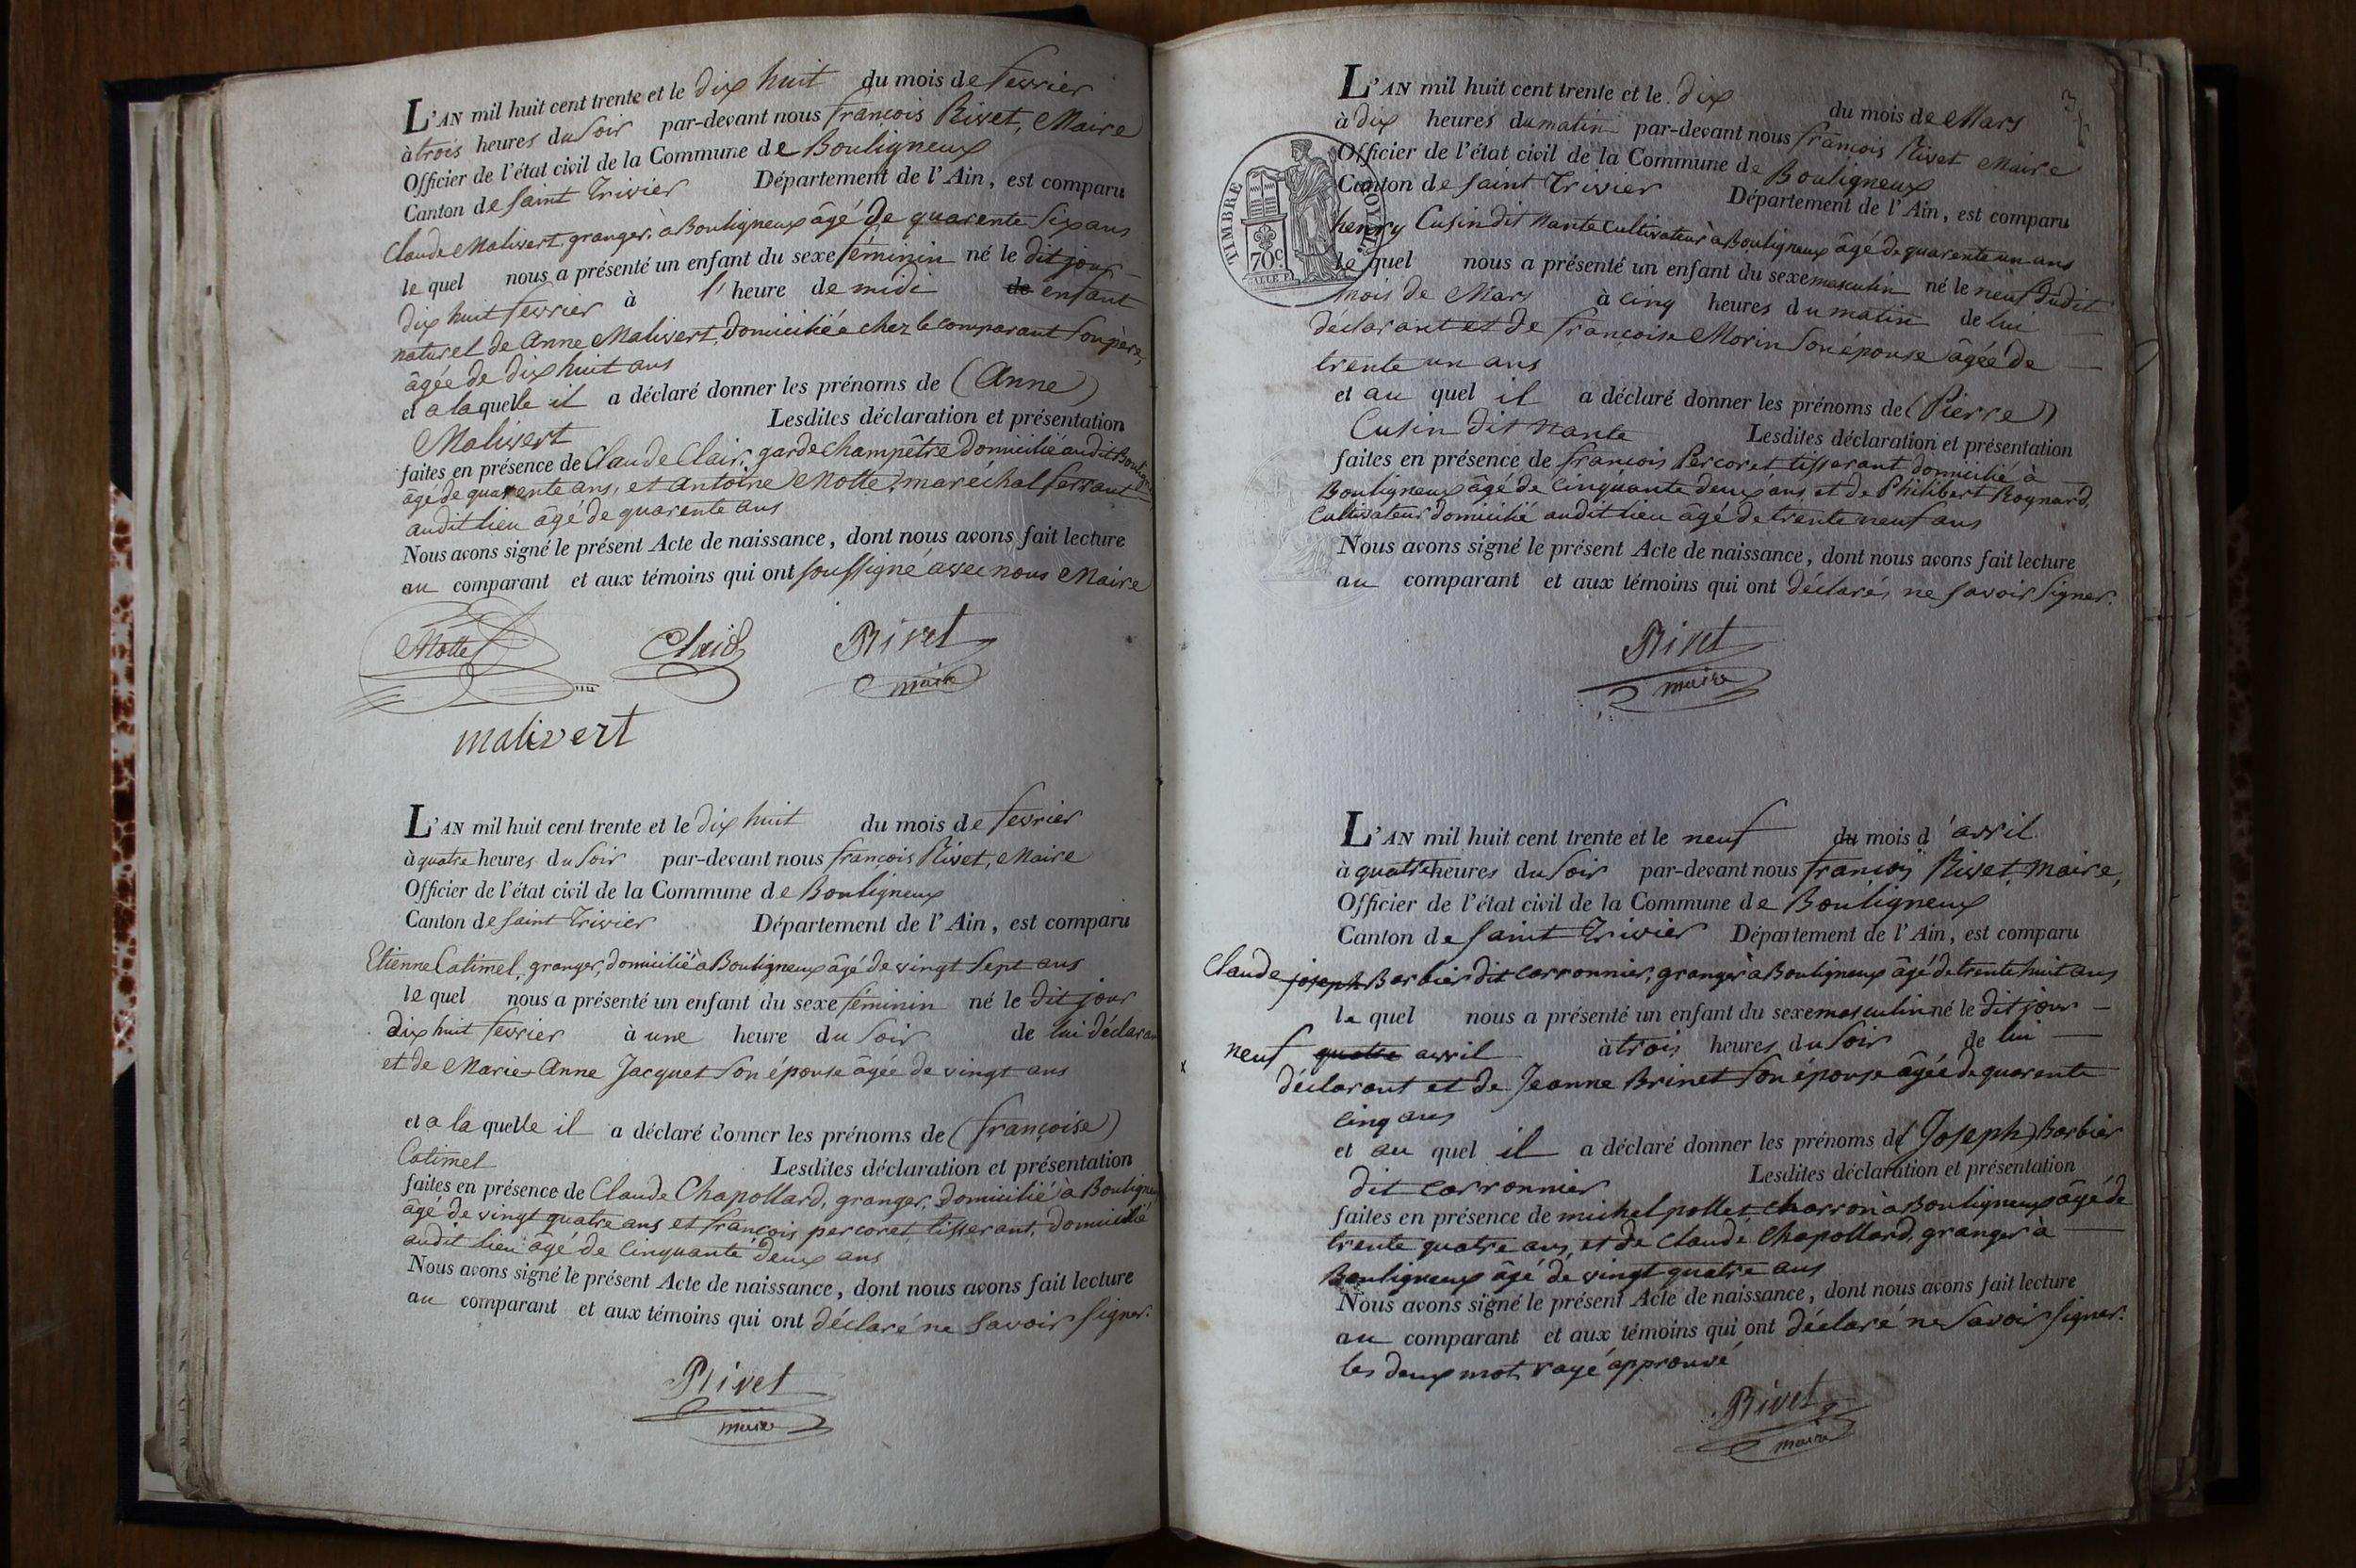 L'AN mil huit cent trente et le dix huit du mois de fevrier
à trois heures du soir par-devant nous françois Rivet, Maire
Officier de l'état civil de la Commune de Bouligneux
Canton de saint Trivier Département de l'Ain, est comparu
Claude Malivert, granger, à Bouligneux âgé de quarente six ans
le quel nous a présenté un enfant du sexe féminin né le dit jour
dix huit fevrier à l'heure de midi de enfant
naturel de Anne Malivert, domiciliée chez le comparant son père,
âgée de dix huit ans
et a laquelle il a déclaré donner les prénoms de (Anne)
Malivert Lesdites déclaration et présentation
faites en présence de Claude Clair, garde champêtre domicilié audit Bouligneux
âgé de quarente ans, et antoine Motte, maréchal ferrant
audit lieu âgé de quarente ans
Nous avons signé le présent Acte de naissance, dont nous avons fait lecture
au comparant et aux témoins qui ont soussigné avec nous Maire
Motte Clair Rivet
maire
malivert
L'AN mil huit cent trente et le dix huit du mois de fevrier
à quatre heures du soir par-devant nous françois Rivet, Maire
Officier de l'état civil de la Commune de Bouligneux
Canton de saint Trivier Département de l'Ain, est comparu
Etienne Catimel, granger, domicilié à Bouligneux âgé de vingt sept ans
le quel nous a présenté un enfant du sexe féminin né le dit jour
dix huit fevrier à une heure du soir de lui déclarant
et de Marie Anne Jacquet son épouse âgée de vingt ans
et a la quelle il a déclaré donner les prénoms de (françoise)
Catimel Lesdites déclaration et présentation
faites en présence de Claude Chapollard, granger, domicilié à Bouligneux
âgé de vingt quatre ans et françois percoret tisserant, domicilié
audit lieu âgé de cinquante deux ans
Nous avons signé le présent Acte de naissance, dont nous avons fait lecture
au comparant et aux témoins qui ont déclaré ne savoir signer.
Rivet
maire
L'AN mil huit cent trente et le dix du mois de Mars
à dix heures du matin par-devant nous françois Rivet Maire
Officier de l'état civil de la Commune de Bouligneux
Canton de saint Trivier Département de l'Ain, est comparu
henry Cusin dit Nante cultivateur à Bouligneux âgé de quarente un ans
le quel nous a présenté un enfant du sexe masculin né le neuf dudit
mois de Mars à cinq heures du matin de lui
déclarant et de françoise Morin son épouse âgée de
trente un ans
et au quel il a déclaré donner les prénoms de (Pierre)
Cusin dit Nante Lesdites déclaration et présentation
faites en présence de françois Percoret tisserant domicilié à
Bouligneux âgé de cinquante deux ans et de Philibert Rognard
cultivateur domicilié audit lieu âgé de trente neuf ans
Nous avons signé le présent Acte de naissance, dont nous avons fait lecture
au comparant et aux témoins qui ont déclaré ne savoir signer.
Rivet
maire
TIMBRE ROYAL
70c
L'AN mil huit cent trente et le neuf du mois d'avril
à quatre heures du soir par-devant nous françois Rivet, maire,
Officier de l'état civil de la Commune de Bouligneux
Canton de saint Trivier Département de l'Ain, est comparu
Claude joseph Barbier dit carronnier, granger à Bouligneux âgé de trente huit ans
le quel nous a présenté un enfant du sexe masculin né le dit jour
neuf quatre avril à trois heures du soir de lui
déclarant et de Jeanne Brinet son épouse âgée de quarente
cinq ans
et au quel il a déclaré donner les prénoms de (Joseph) Barbier
dit carronnier Lesdites déclaration et présentation
faites en présence de michel pollet charron à Bouligneux âgé de
trente quatre ans, et de Claude Chapollard, granger à
Bouligneux âgé de vingt quatre ans
Nous avons signé le présent Acte de naissance, dont nous avons fait lecture
au comparant et aux témoins qui ont déclaré ne savoir signer.
les deux mot rayé approuvé
Rivet
maire